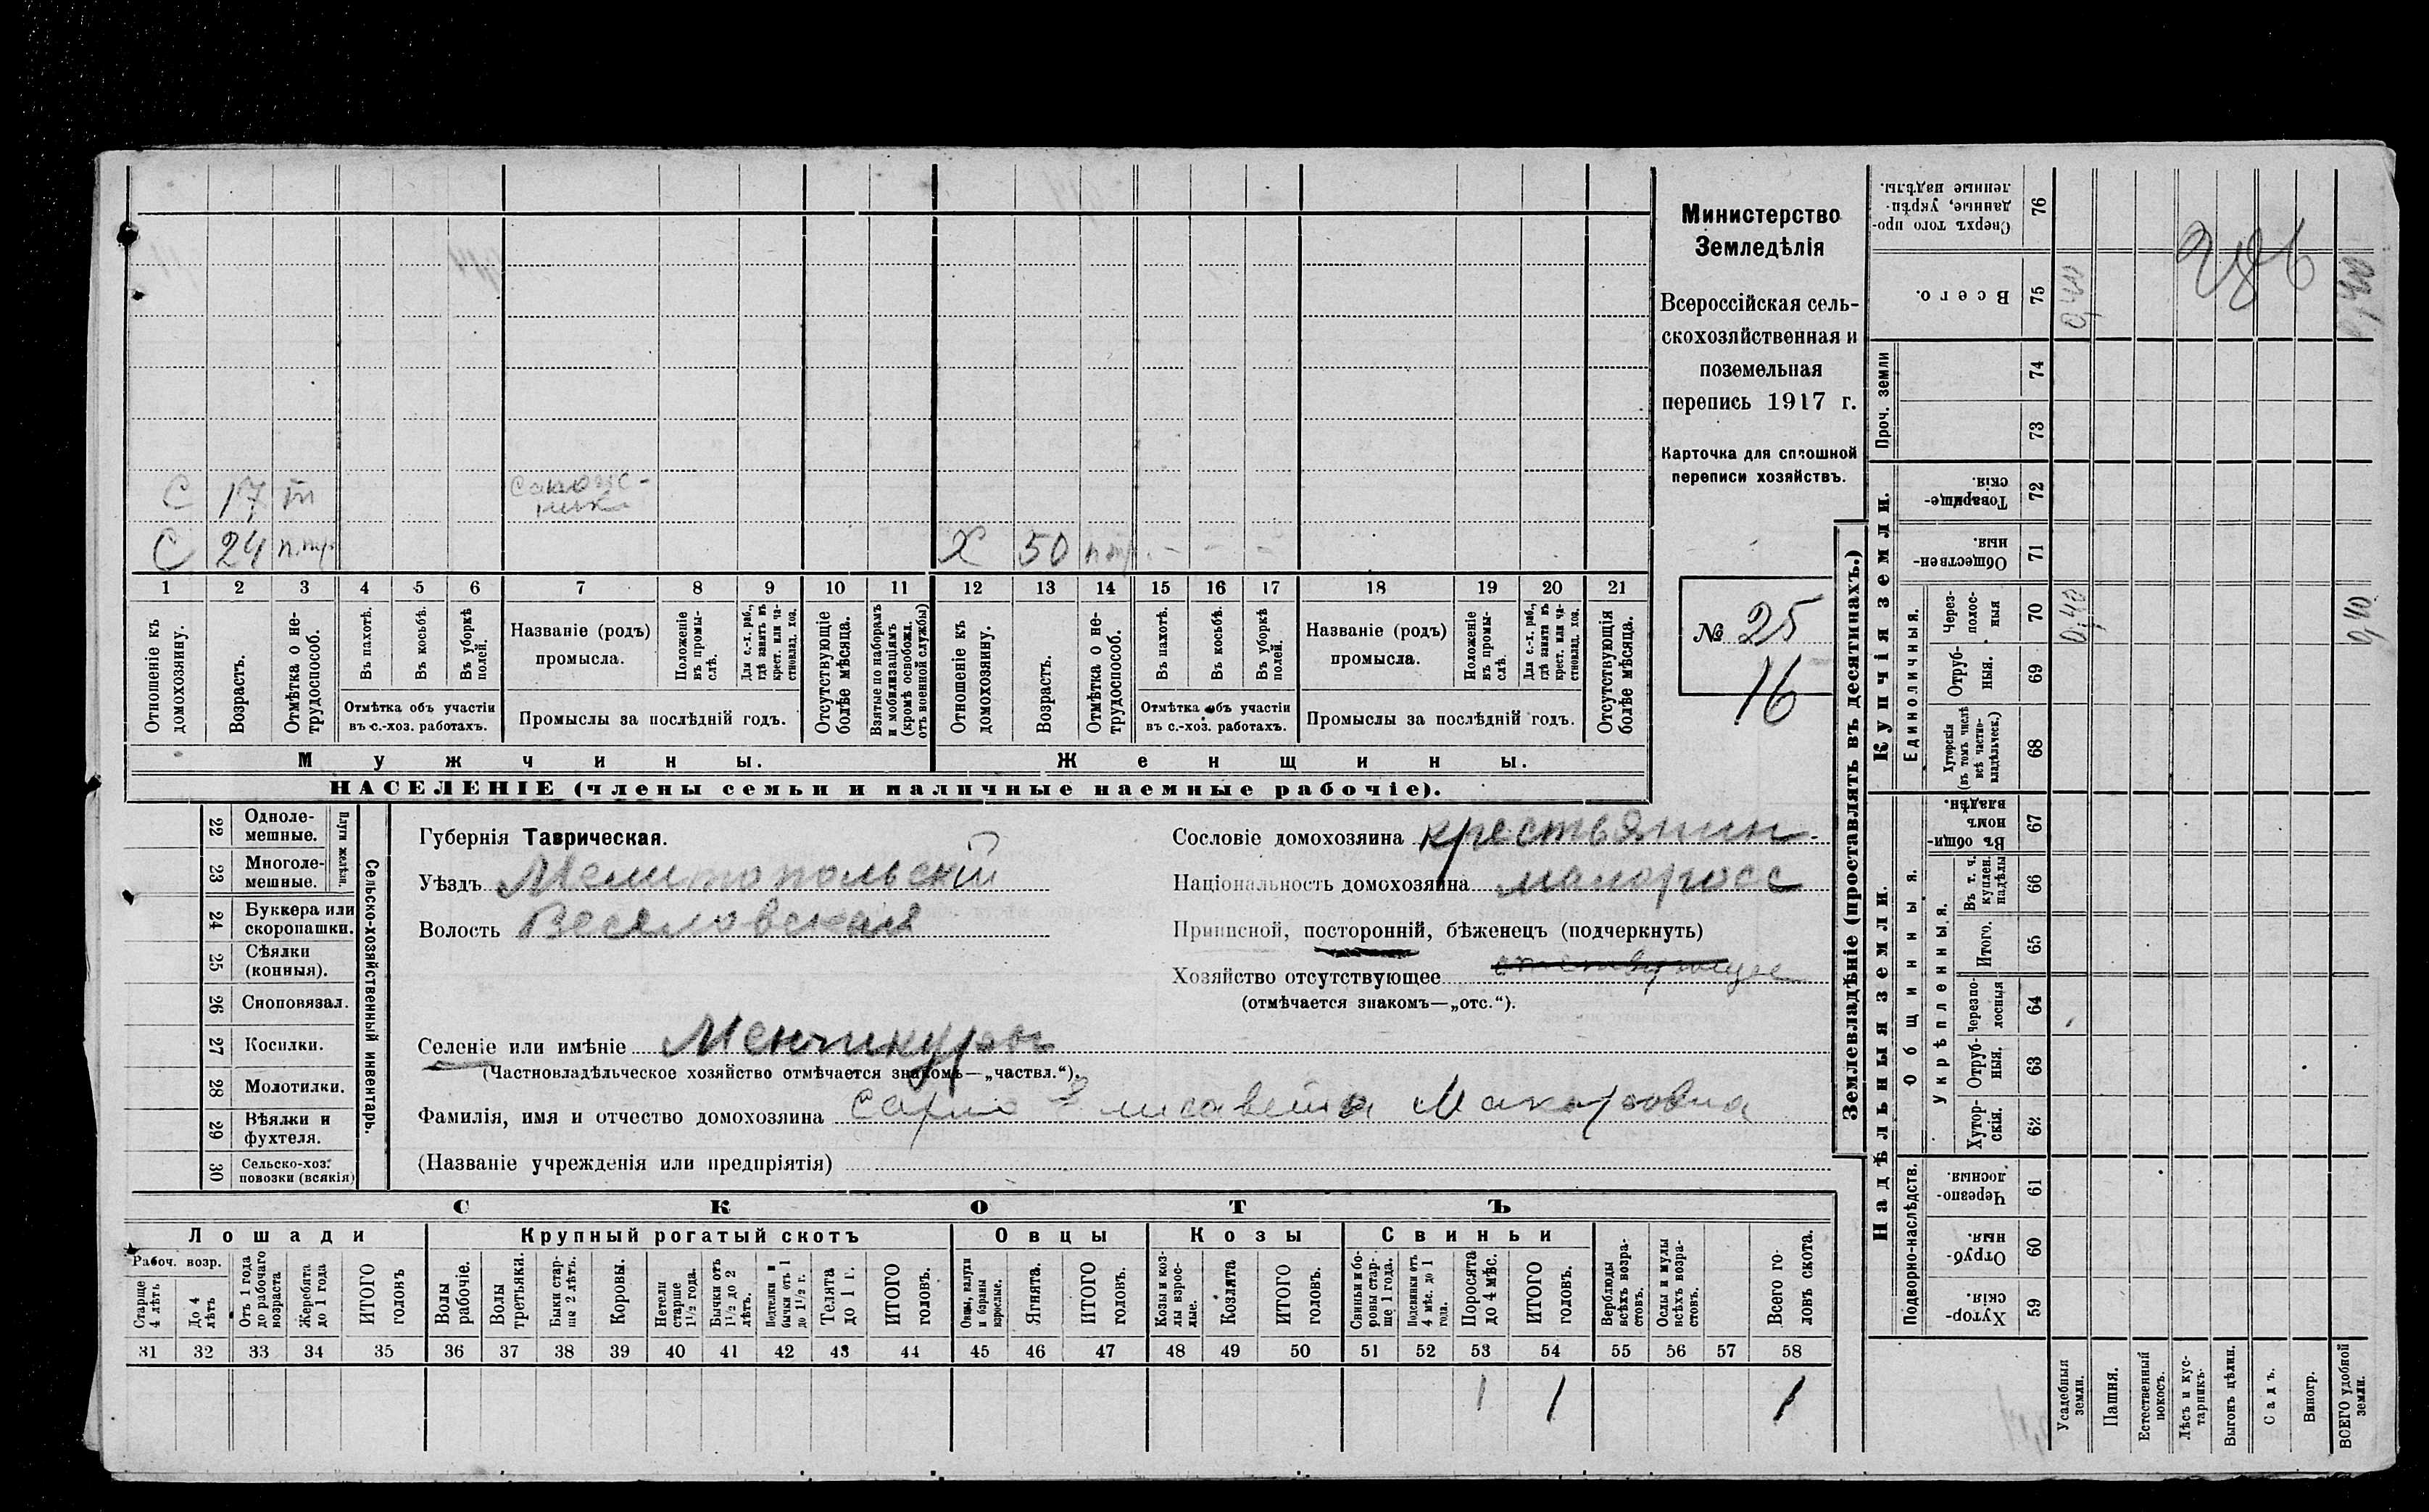 С 17 п
сапож-
ник
С 24 п.тр. Х 50 п.тр. - - -
1 2 3 4 5 6 7 8 9 10 11 12 13 14 15 16 17 18 19 20 21
Отношеніе къ домохозяину.
Возрастъ.
Отмѣтка о не-
трудоспособ.
Въ пахотѣ.
Въ косьбѣ.
Въ уборкѣ полей.
Отмѣтка объ участіи
въ с.-хоз. работахъ.
Названіе (родъ)
промысла.
Положеніе въ промы-
слѣ.
Для с.-х. раб., гдѣ занятъ въ крест. или ча-
стновлад. хоз.
Промыслы за послѣдній годъ.
Отсутствующіе болѣе мѣсяца.
Взятые по наборамъ и мобилизаціямъ (кромѣ освобожд. отъ военной службы)
Отношеніе къ домохозяину.
Возрастъ.
Отмѣтка о не-
трудоспособ.
Въ пахотѣ.
Въ косьбѣ.
Въ уборкѣ полей.
Отмѣтка объ участіи
въ с.-хоз. работахъ.
Названіе (родъ)
промысла.
Положеніе въ промы-
слѣ.
Для с.-х. раб., гдѣ занята въ крест. или ча-
стновлад. хоз.
Промыслы за послѣдній годъ.
Отсутствующія болѣе мѣсяца.
Мужчины. Женщины.
НАСЕЛЕНІЕ (члены семьи и наличные наемные рабочіе).
Министерство
Земледѣлія
Всероссійская сель-
скохозяйственная и
поземельная
перепись 1917 г.
Карточка для сплошной
переписи хозяйствъ.
№ 25
16
22 Одноле-
мешные.
23 Многоле-
мешные.
Плуги желѣзн.
24 Буккера или
скоропашки.
25 Сѣялки
(конныя).
26 Сноповязал.
27 Косилки.
28 Молотилки.
29 Вѣялки и
фухтеля.
30 Сельско-хоз.
повозки (всякія)
Сельско-хозяйственный инвентарь.
Губернія Таврическая.
Уѣздъ Мелитопольскій
Волость Веселовская
Сословіе домохозяина крестьянин
Національность домохозяина малоросс
Приписной, посторонній, бѣженецъ (подчеркнуть)
Хозяйство отсутствующее
(отмѣчается знакомъ—„отс.“).
Селеніе или имѣніе Менчикуры
(Частновладѣльческое хозяйство отмѣчается знакомъ—„частвл.“).
Фамилія, имя и отчество домохозяина Елисавета Макаровна
(Названіе учрежденія или предпріятія)
СКОТЪ
Лошади Крупный рогатый скотъ Овцы Козы Свиньи
Рабоч. возр.
Старше 4 лѣтъ
До 4 лѣтъ
Отъ 1 года до рабочаго возраста
Жеребята до 1 года
ИТОГО головъ
Волы рабочіе.
Волы третьяки.
Быки стар-
ше 2 лѣтъ.
Коровы.
Нетели старше 1½ года.
Бычки отъ 1½ до 2 лѣтъ.
Подтелки и бычки отъ 1 до 1½ г.
Телята до 1 г.
ИТОГО головъ.
Овцы, валухи и бараны взрослые.
Ягнята.
ИТОГО головъ.
Козы и коз-
лы взрос-
лые.
Козлята
ИТОГО головъ.
Свиньи и бо-
ровы стар-
ше 1 года.
Подсвинки отъ 4 мѣс. до 1 года.
Поросята до 4 мѣс.
ИТОГО головъ.
Верблюды всѣхъ возра-
стовъ.
Ослы и мулы всѣхъ возра-
стовъ.
Всего го-
ловъ скота.
31 32 33 34 35 36 37 38 39 40 41 42 43 44 45 46 47 48 49 50 51 52 53 54 55 56 57 58
1 1 1
Землевладѣніе (проставлять въ десятинахъ.)
Купчія земли.
Надѣльныя земли.
Сверхъ того про-
данные, укрѣп-
ленные надѣлы.
76
Всего.
75
0,40
286
0,40
Проч. земли
74
73
Товарище-
скія.
72
Обществен-
ныя.
71
Единоличныя.
Через-
полос-
ныя
70
0,40
0,40
Отруб-
ныя.
69
Хуторскія (въ томъ числѣ всѣ частно-
владѣльческ.)
68
Общинныя.
Въ общи-
номъ
владѣн.
67
Укрѣпленныя.
Въ т. ч. куплен. надѣлы
66
Итого.
65
Черезпо-
лосныя
64
Отруб-
ныя.
63
Хутор-
скія.
62
Подворно-наслѣдств.
Черезпо-
лосныя
61
Отруб-
ныя.
60
Хутор-
скія.
59
Усадебныя земли.
Пашня.
Естественный покосъ.
Лѣсъ и кус-
тарникъ.
Выгонъ цѣлин.
Садъ.
Виногр.
ВСЕГО удобной земли.